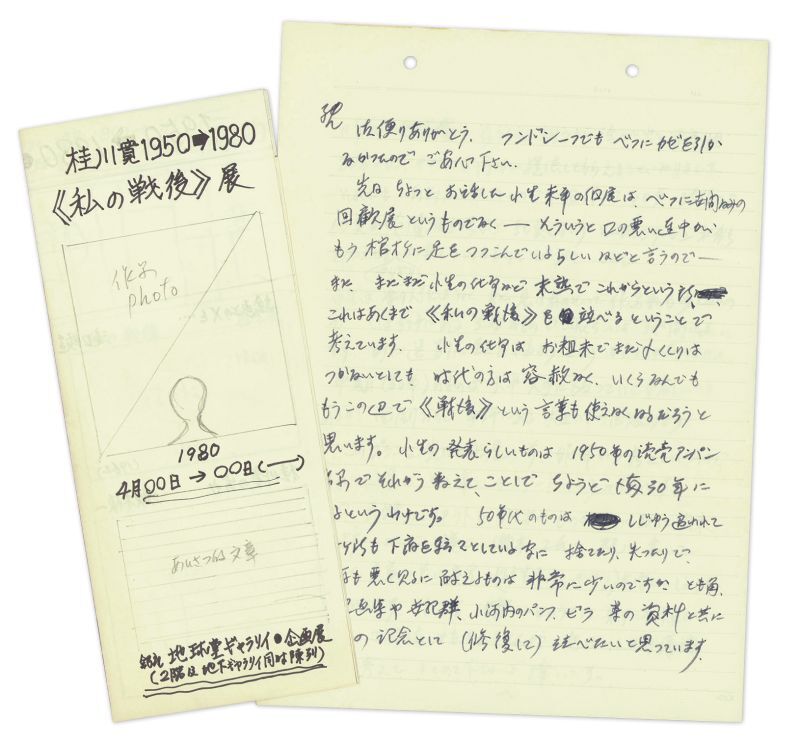 桂川寛1950➡1980
《私の戦後》展
作品
photo
1980
4月00日→00日(―)
あいさつ的文章
銀座 地球堂ギャラリイ●企画展
(2階は地下ギャラリイ同時陳列)
お便りありがとう。フンドシ一つでもべつにカゼも引か
るかったのでご安心下さい。
先日ちょっとお話した小生来年の個展は、べつに世間なみの
回顧展というものでなく――そういうと口の悪い連中が、
もう棺桶に足をつっこんでいるらしいなどと言うので――
また、まだまだ小生の仕事など未熟でこれからという
これはあくまで《私の戦後》を並べるということで
考えています。小生の仕事はお粗末でまだしめくくりは
つかないとしても、時代の方は容赦なく、いくらなんでも
もうこの辺で《戦後》という言葉も使えなくなるだろうと
思います。小生の発表らしいものは1950年の読売アンパン
でそれから数えて、ことしでちょうど満30年に
というわけです。50年代のものはしじゅう追われて
下宿を転々としている間に捨てたり、失ったりで、
も悪く見るに耐えるものは非常に少いのですが、とも角、
や世紀群、小河内のパンフ、ビラ等の資料と共に
の記念として(修復して)並べたいと思っています。